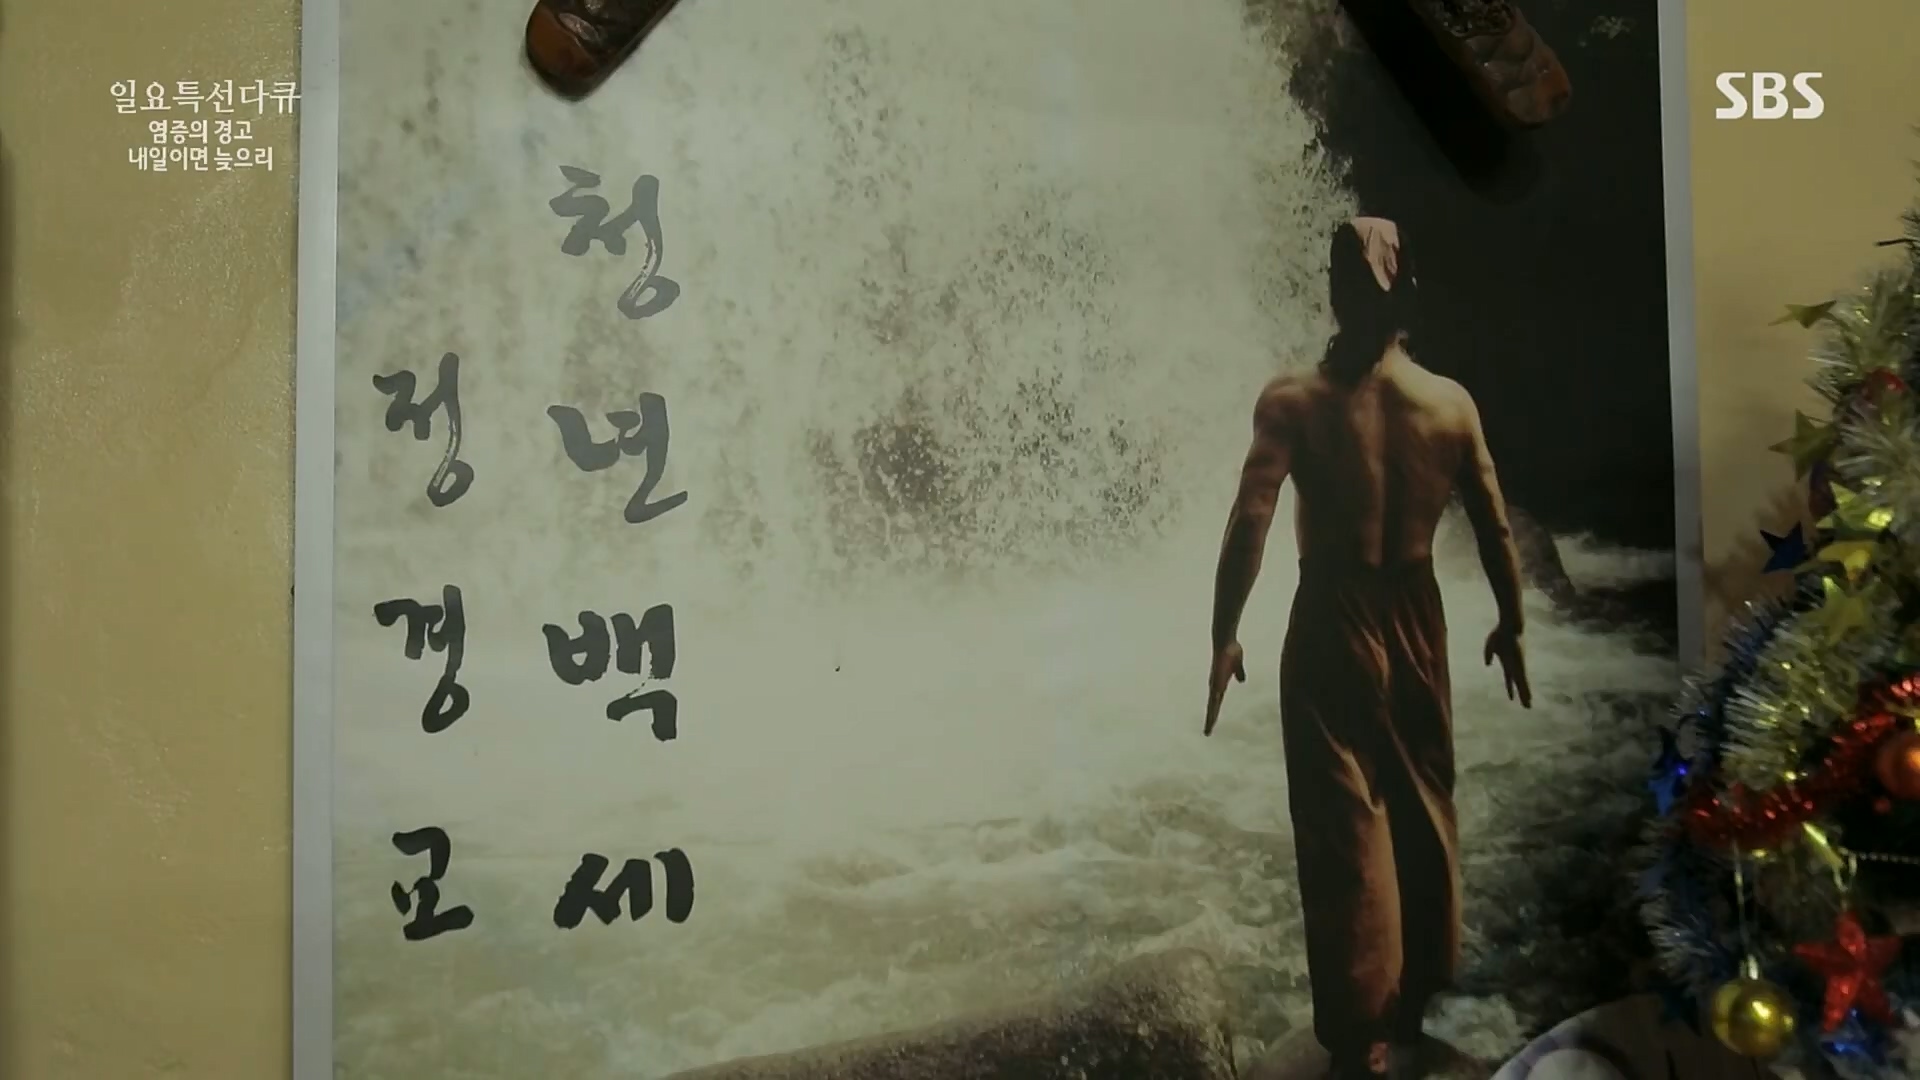 일요특선다큐
염증의 경고
내일이면 늦으리
SBS
청년백세
정경교